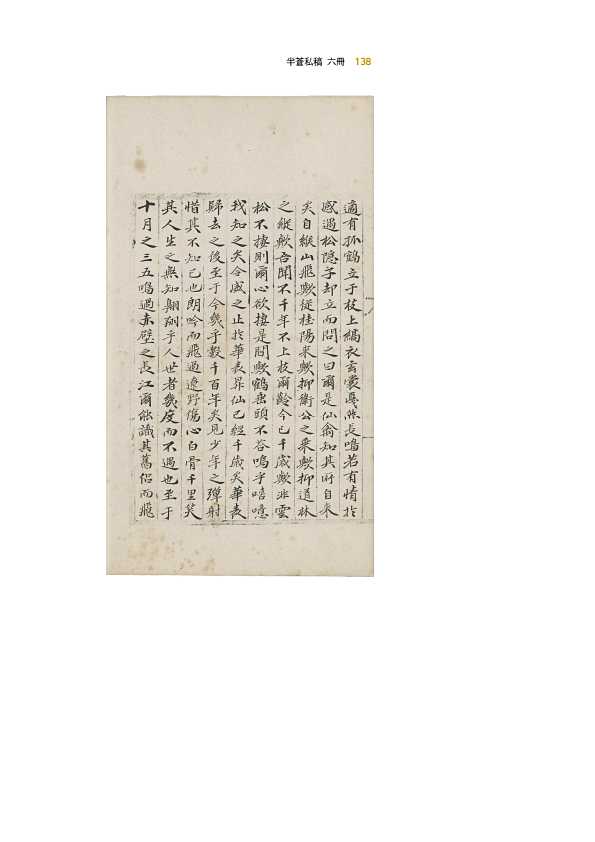 半蒼私稿 六冊 138
適有孤鶴立于枝上縞衣玄裳戛然長鳴若有情於
感過松隱子却立而問之曰爾是仙禽知其所自来
矣自緱山飛歟從桂陽来歟抑衛公之乗歟抑道林
之縱歟吾聞不千年不上枝爾齡今已千歲歟非雲
松不捿則爾心欲捿是間歟鶴垂頭不答嗚乎嘻噫
我知之矣今感之止於華表昇仙已經千歲矣華表
歸去之後至于今幾乎數千百年矣見少年之彈射
惜其不知己也朗吟而飛過遼野傷心白骨千里笑
其人生之無知翺翔乎人世者幾度而不遇也至于
十月之三五鳴過赤壁之長江爾能識其舊侶而飛